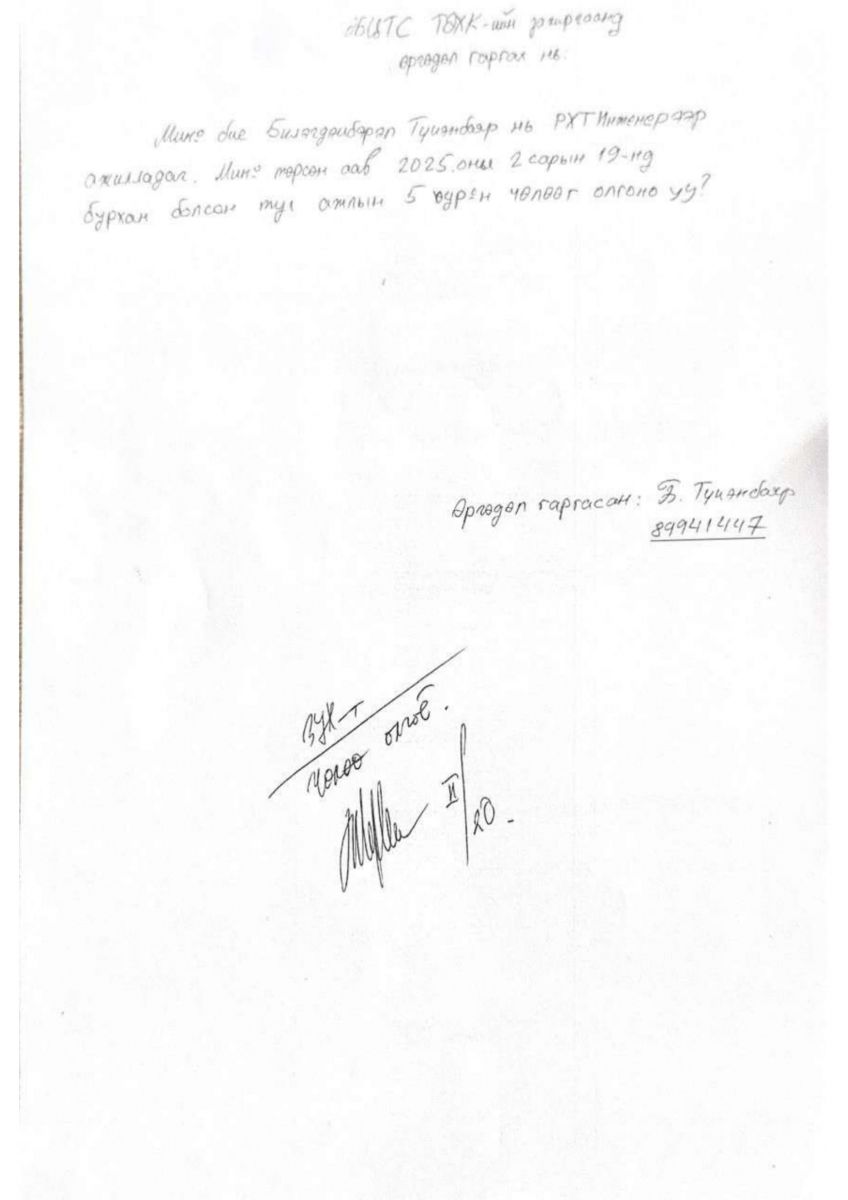 ББЦТС ТӨХК-ийн захиргаанд
өргөдөл гаргах нь:
Миний бие Билэгдэмбэрэл Түмэнбаяр нь РХТ Инженерээр
ажилладаг. Миний төрсөн аав 2025 оны 2 сарын 19-нд
бурхан болсон тул ажлын 5 өдрийн чөлөөг олгоно уу?
Өргөдөл гаргасан: Б. Түмэнбаяр
89941447
ЗУХ-т
Чөлөө олгоё.
II/20.